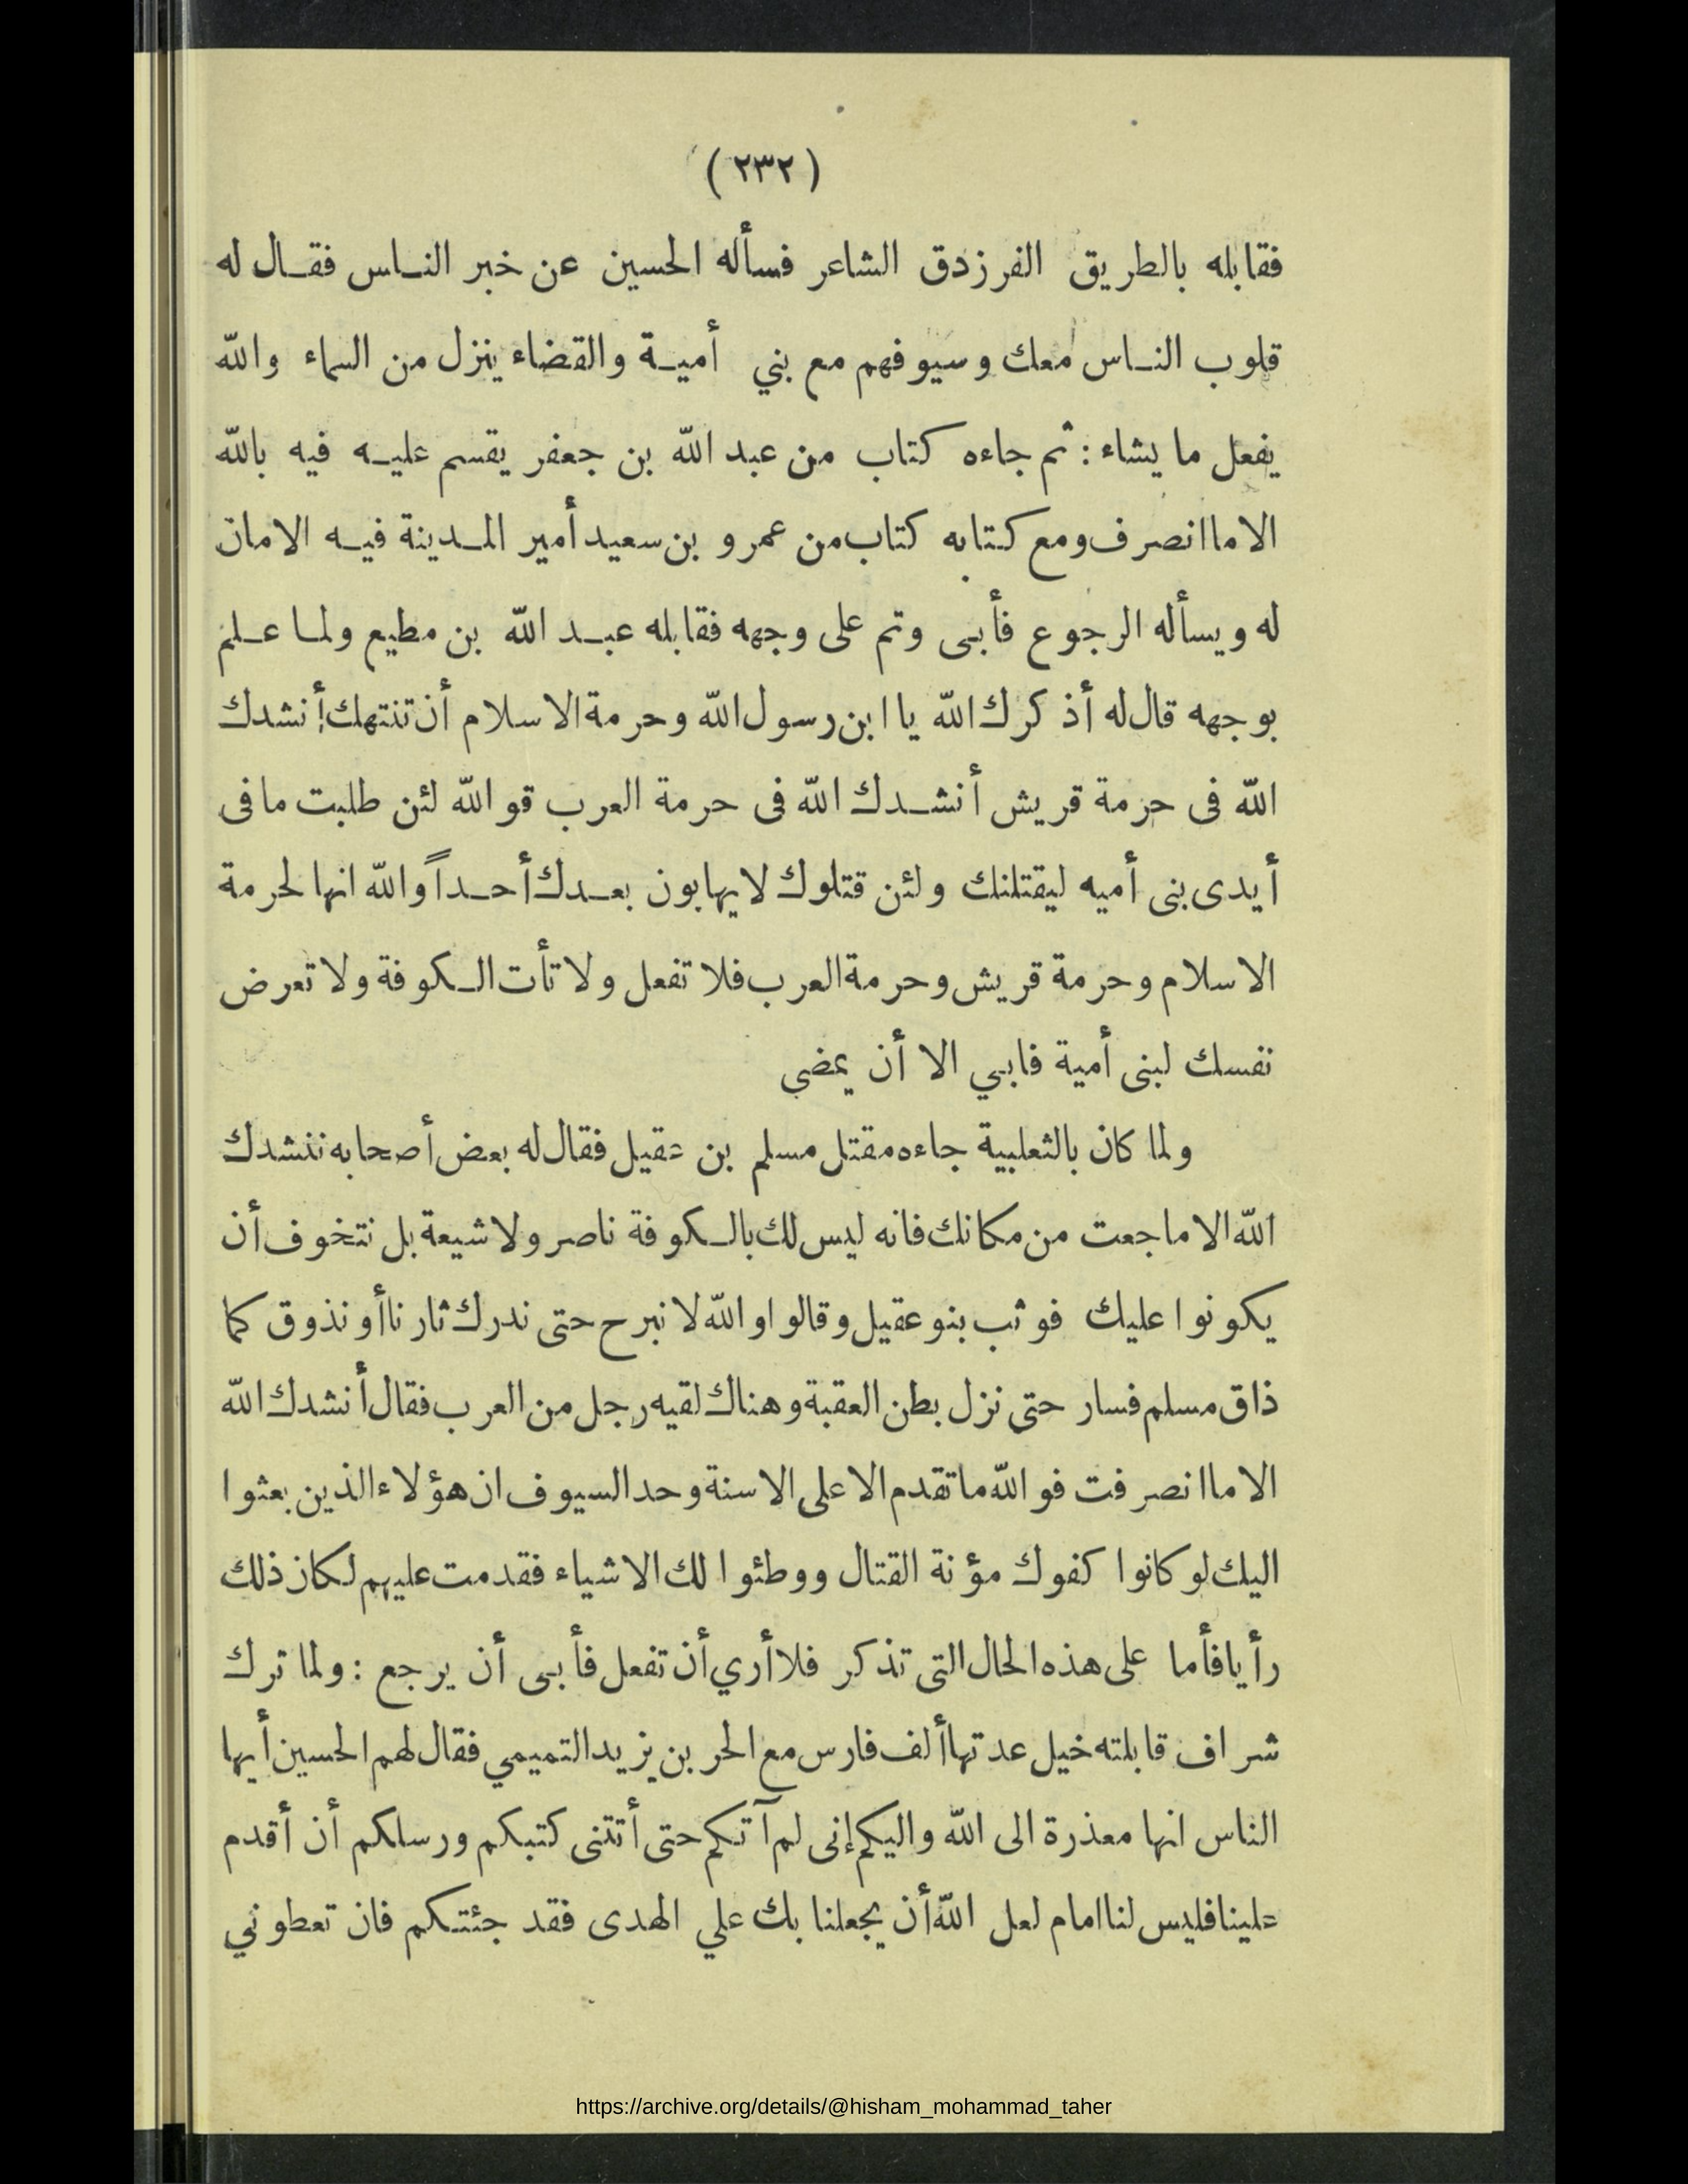 (٢٣٢)
فقابله بالطريق الفرزدق الشاعر فسأله الحسين عن خبر الناس فقال له
قلوب الناس معك وسيوفهم مع بني أمية والقضاء ينزل من السماء والله
يفعل ما يشاء : ثم جاءه كتاب من عبد الله بن جعفر يقسم عليه فيه بالله
الا ما انصرف ومع كتابه كتاب من عمرو بن سعيد أمير المدينة فيه الامان
له ويسأله الرجوع فأبى وتم على وجهه فقابله عبد الله بن مطيع ولما علم
بوجهه قال له أذكرك الله يا ابن رسول الله وحرمة الاسلام أن تنتهك أنشدك
الله فى حرمة قريش أنشدك الله فى حرمة العرب قوالله لئن طلبت ما فى
أيدى بنى أميه ليقتلنك ولئن قتلوك لا يهابون بعدك أحداً والله انها لحرمة
الاسلام وحرمة قريش وحرمة العرب فلا تفعل ولا تأت الكوفة ولا تعرض
نفسك لبنى أمية فابي الا أن يمضى
ولما كان بالثعلبية جاءه مقتل مسلم بن عقيل فقال له بعض أصحابه ننشدك
الله الا ما جعت من مكانك فانه ليس لك بالكوفة ناصر ولا شيعة بل نتخوف أن
يكونوا عليك فوثب بنو عقيل وقالوا والله لا نبرح حتى ندرك ثارنا أو نذوق كما
ذاق مسلم فسار حتى نزل بطن العقبة وهناك لقيه رجل من العرب فقال أنشدك الله
الا ما انصرفت فوالله ما تقدم الا على الاسنة وحد السيوف ان هؤلاء الذين بعثوا
اليك لو كانوا كفوك مؤنة القتال ووطئوا لك الاشياء فقدمت عليهم لكان ذلك
رأيا فأما على هذه الحال التى تذكر فلا أري أن تفعل فأبى أن يرجع : ولما ترك
شراف قابلته خيل عدتها ألف فارس مع الحر بن يزيد التميمي فقال لهم الحسين أيها
الناس انها معذرة الى الله واليكم إنى لم آتكم حتى أتتنى كتبكم ورسلكم أن أقدم
علينا فليس لنا امام لعل الله أن يجعلنا بك علي الهدى فقد جئتكم فان تعطوني
https://archive.org/details/@hisham_mohammad_taher